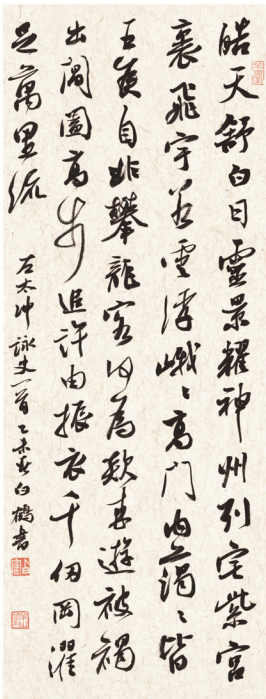 皓天舒白日靈景耀神州列宅紫宮
裏飛宇若雲浮峨〻高門內藹〻皆
王侯自非攀龍客何為欻來遊被褐
出閶闔高步追許由振衣千仞岡濯
足萬里流
左太沖詠史一首乙未春白鶴書